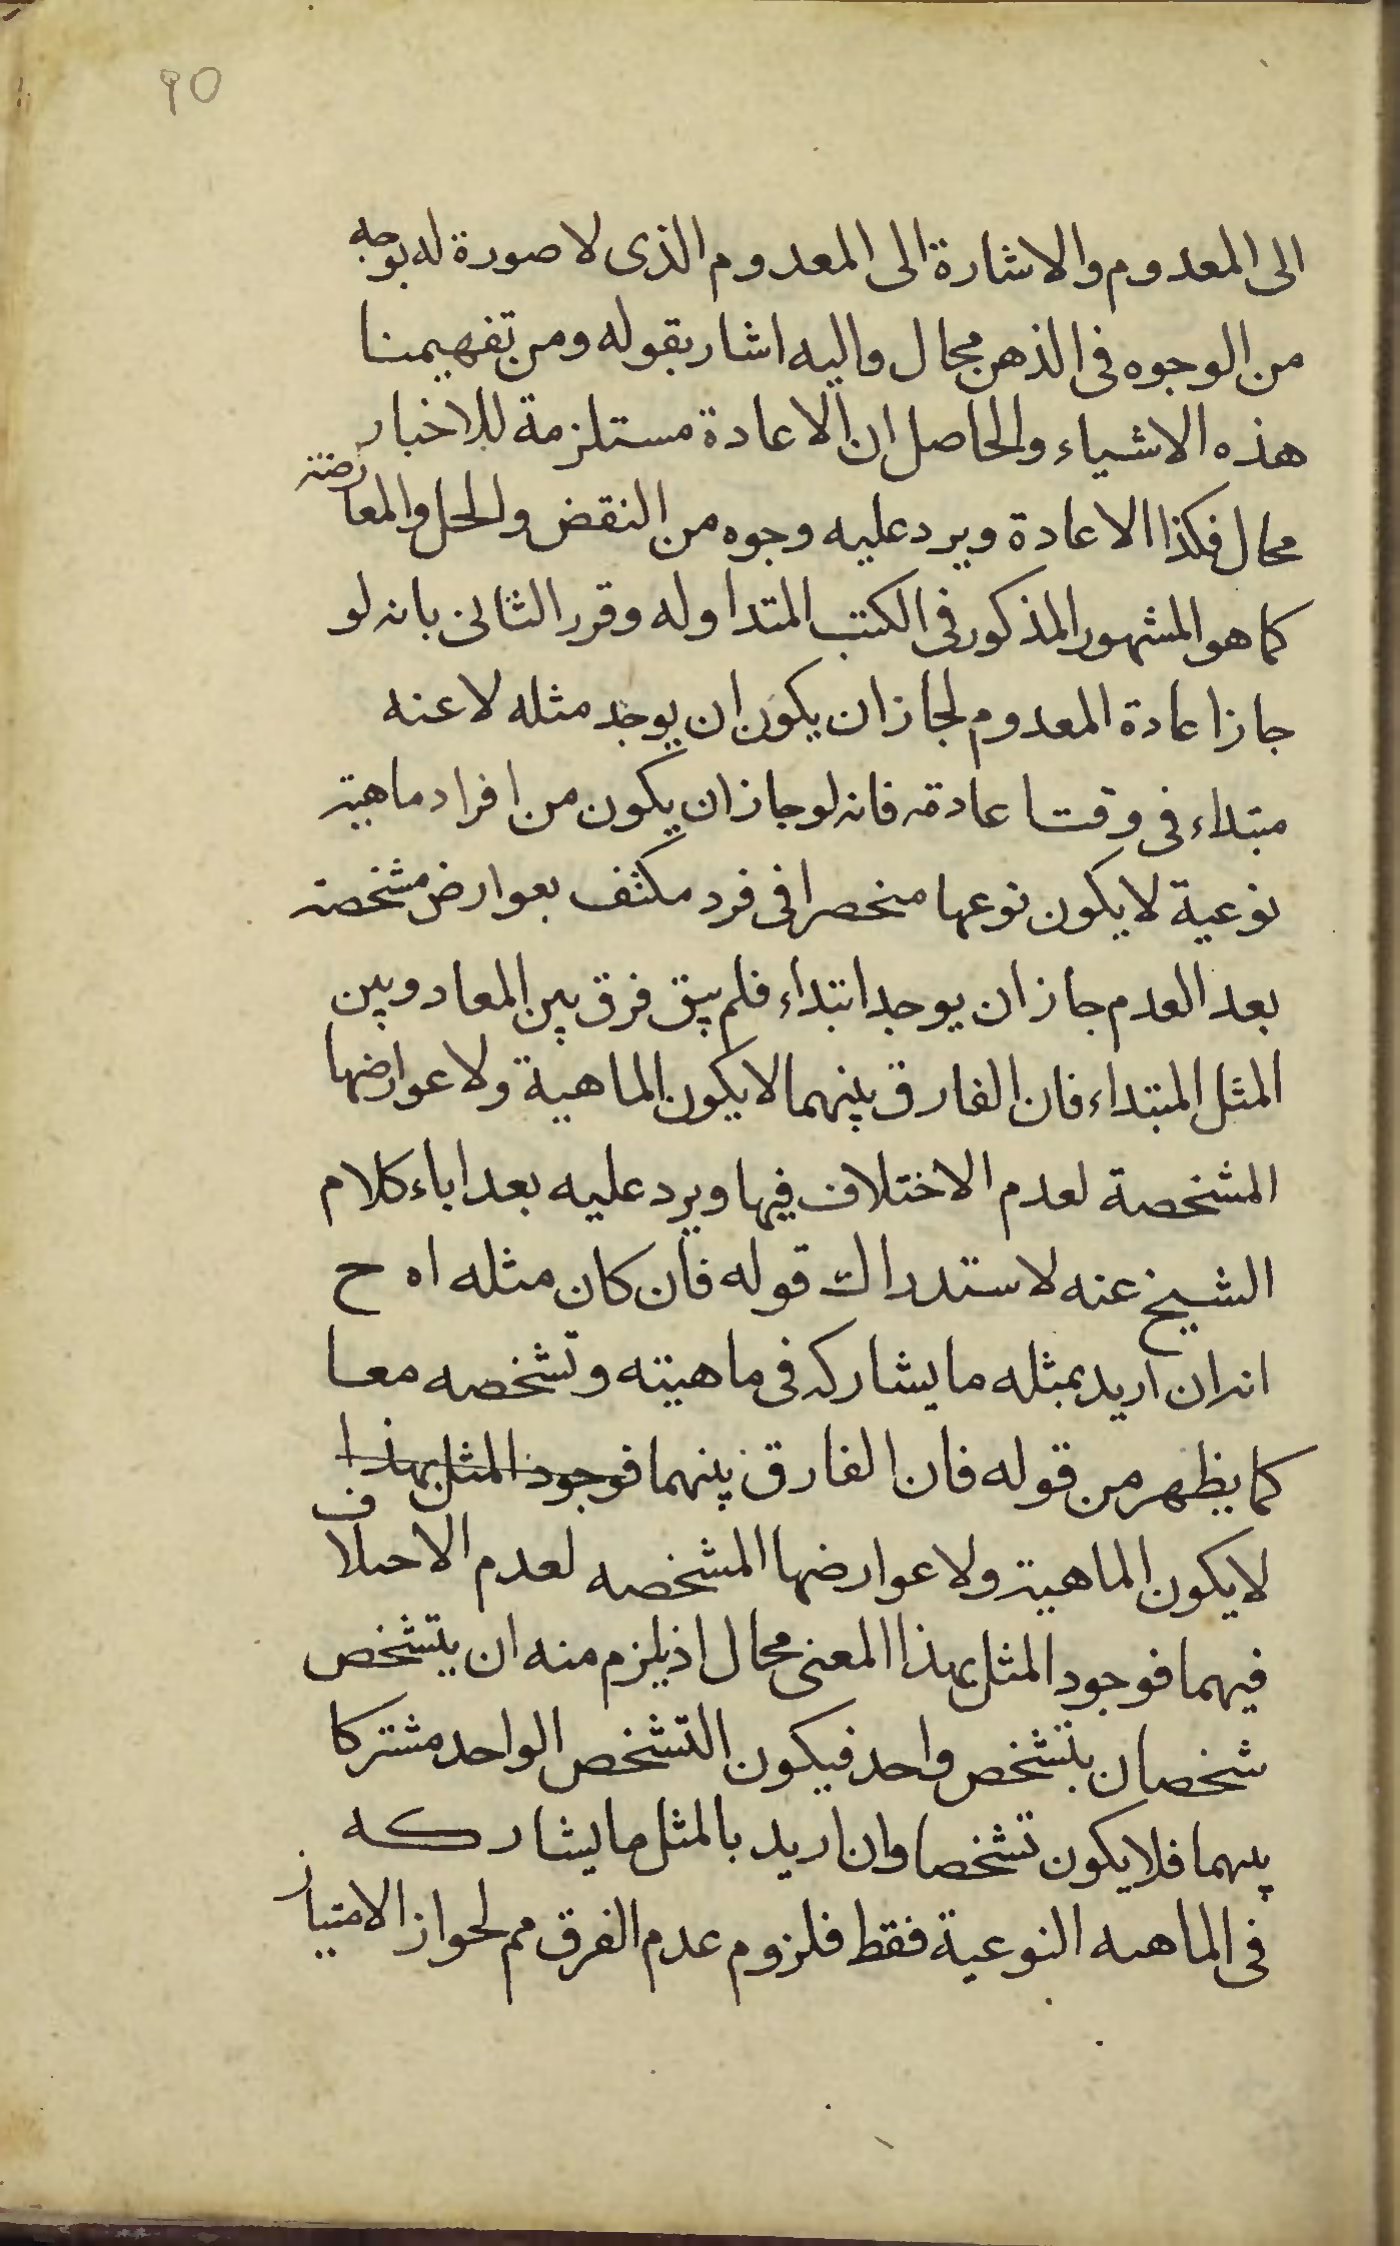 ٩٥
الى المعدوم والاشارة الى المعدوم الذى لا صورة له بوجه
من الوجوه فى الذهن محال واليه اشار بقوله ومن تفهيمنا
هذه الاشياء والحاصل ان الاعادة مستلزمة للاخبار
محال فكذا الاعادة ويرد عليه وجوه من النقض والحل والمعارضة
كما هو المشهور المذكور فى الكتب المتداوله وقرر الثانى بانه لو
جاز اعادة المعدوم لجاز ان يكون ان يوجد مثله لا عنه
مبتداء فى وقت اعادته فانه لو جاز ان يكون من افراد ماهية
نوعية لا يكون نوعها منحصرا فى فرد مكتنف بعوارض مشخصة
بعد العدم جاز ان يوجد ابتداء فلم يبق فرق بين المعاد وبين
المثل المبتداء فان الفارق بينهما لا يكون الماهية ولا عوارضها
المشخصة لعدم الاختلاف فيها ويرد عليه بعد اباء كلام
الشيخ عنه لاستدراك قوله فان كان مثله اه ح
انه ان اريد بمثله ما يشاركه فى ماهيته وتشخصه معا
كما يظهر من قوله فان الفارق بينهما فوجود المثل بهذا
لا يكون الماهية ولا عوارضها المشخصه لعدم الاحىلاف
فيهما فوجود المثل بهذا المعنى محال اذ يلزم منه ان يتشخص
شخصان بتشخص واحد فيكون التشخص الواحد مشتركا
بينهما فلا يكون تشخصا وان اريد بالمثل ما يشاركه
فى الماهيه النوعية فقط فلزوم عدم الفرق مم لجواز الامتياز